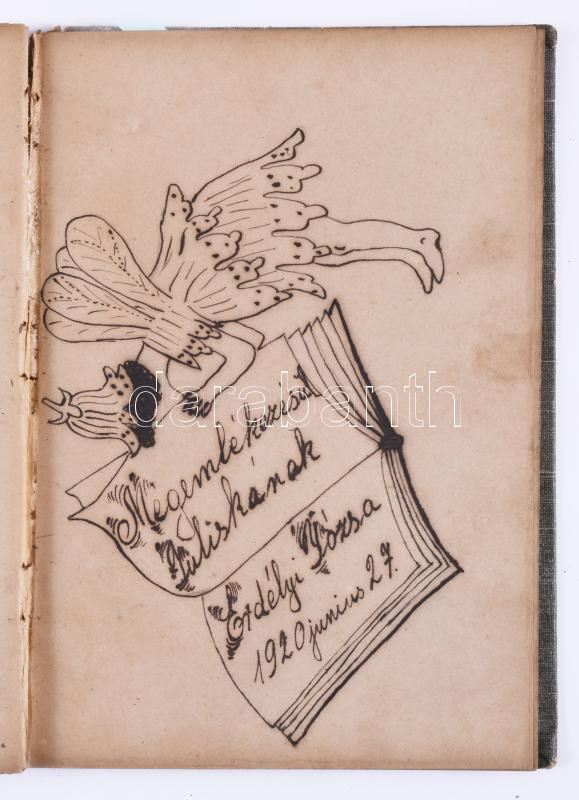 Megemlékezésül
Juliskának
Erdélyi Józsa
1920 junius 27.
darabanth